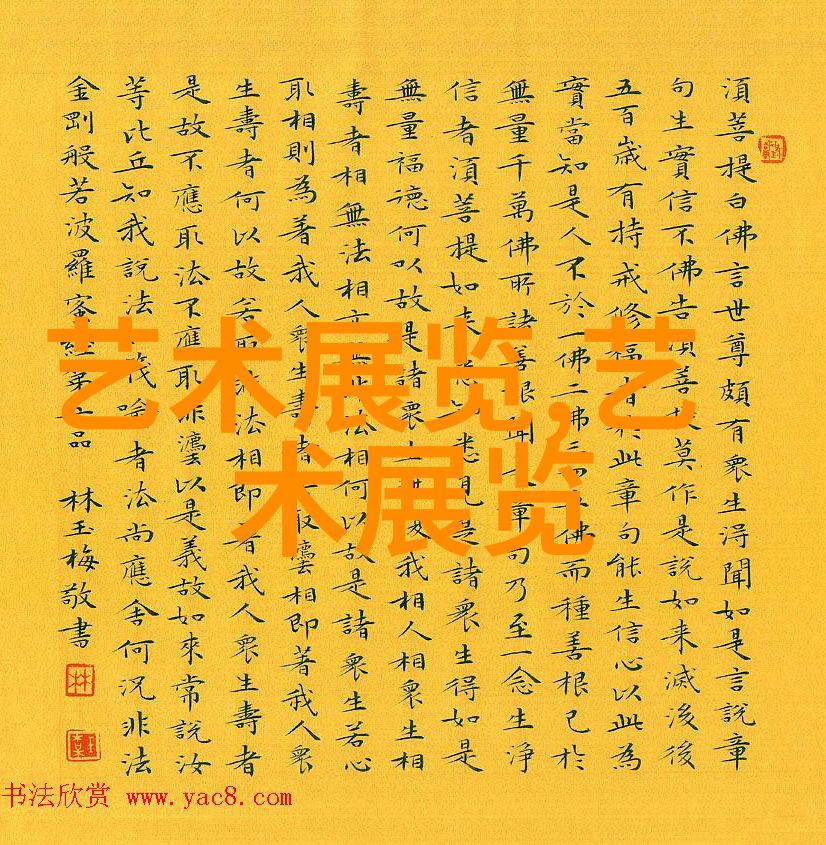 須菩提白佛言世尊頗有衆生得聞如是言說章
句生實信不佛告須菩提莫作是說如来滅後後
五百歲有持戒修福者於此章句能生信心以此為
實當知是人不於一佛二佛三佛而種善根已於
無量千萬佛所諸善根聞章句乃至一念生淨
信者須菩提如来悉知悉見是諸衆生得如是
無量福德何以故是諸衆生無復我相人相衆生相
壽者相無法相亦無非法相何以故是諸衆生若心
取相則為著我人衆生壽者取灋相即著我人衆
生壽者何以故若取非法相即着我人衆生壽者
是故不應取法不應取非灋以是義故如來常說汝
等比丘知我說法筏喻者法尚應舍何況非法
金剛般若波羅蜜經第六品 林玉梅敬書
林
艺术展览,艺
术展览
书法欣赏 www.yac8.com